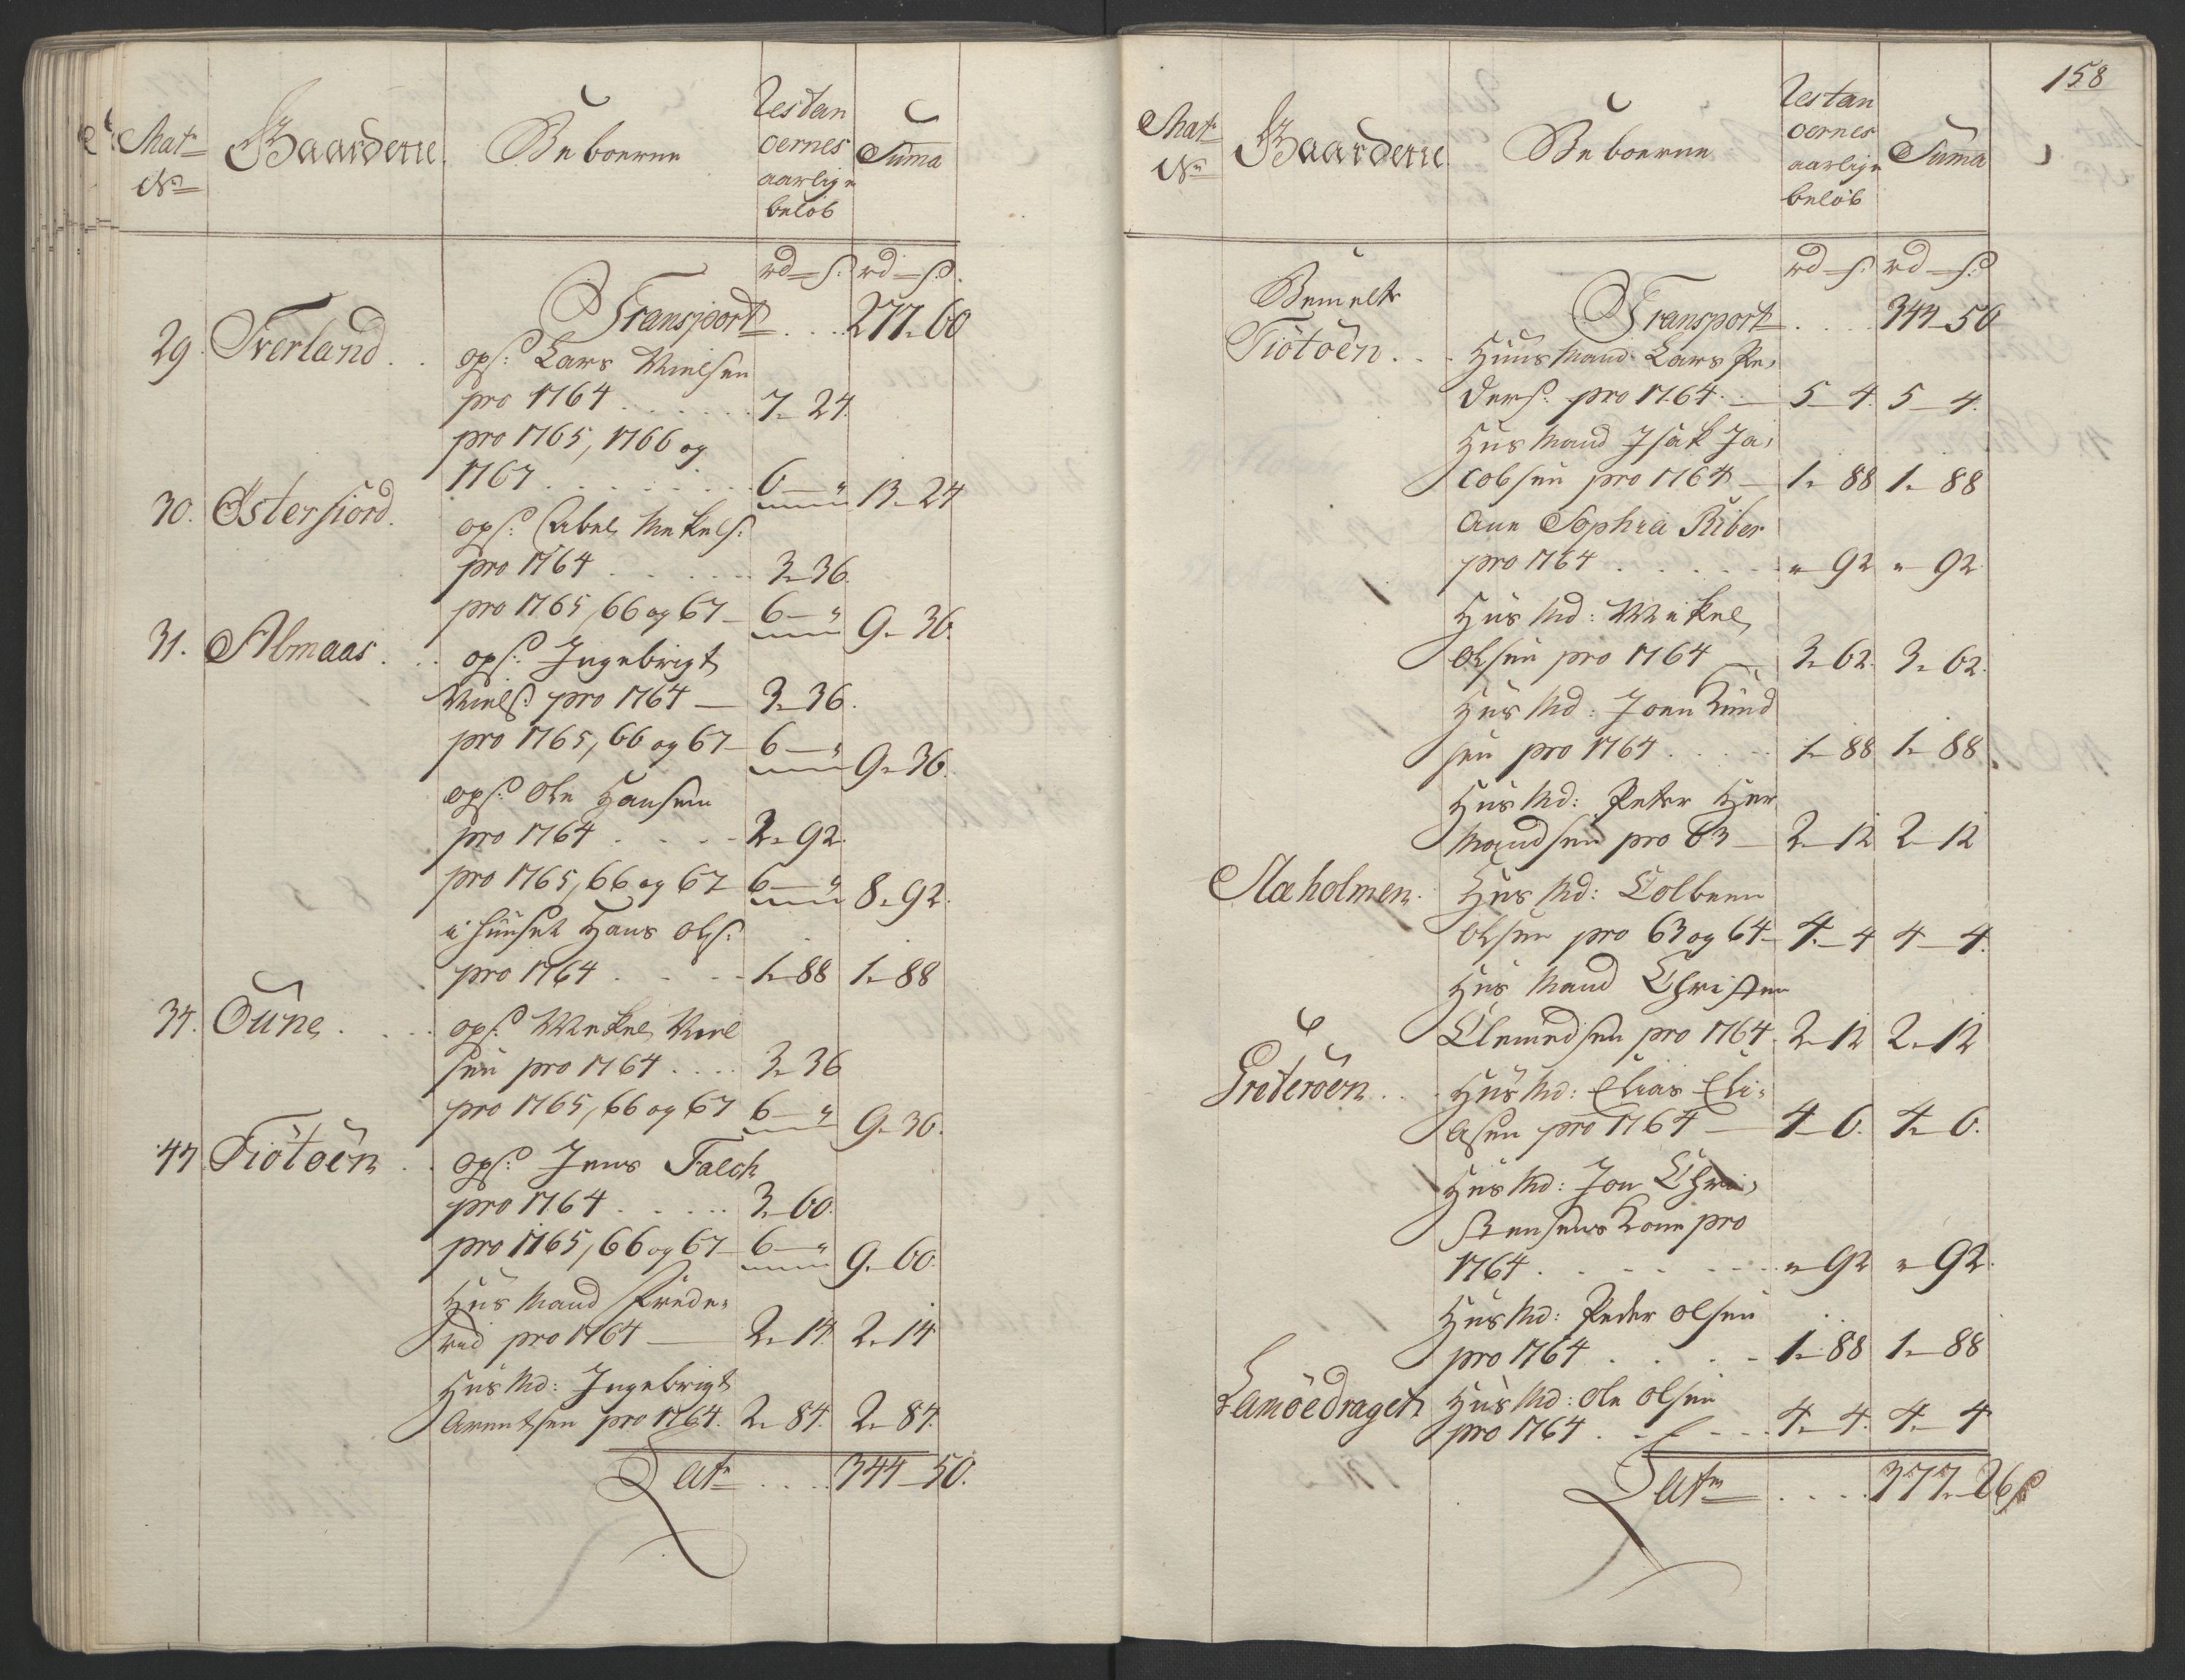 Mat⸗ No
Gaardene
Beboerne
Restan
cernes
aarlige
beløb
Suma
rd — s. rd — s.
Transport . . . 277 - 60
29. Tverland . . ops: Lars Nielsen
pro 1764 . . . . . . 7 - 24.
pro 1765, 1766 og
1767 . . . . . . . 6 — " 13 - 24
30. Østerfiord. ops: Abel Mekels:
pro 1764 . . . . . 3 - 36.
pro 1765, 66 og 67 - 6 — " 9 - 36.
31. Almaas . . ops: Ingebrigt
Niels: pro 1764 — 3 - 36.
pro 1765, 66 og 67 - 6 — " 9 - 36.
ops: Ole Hansen
pro 1764 . . . . 2 - 92.
pro 1765, 66 og 67 6 — " 8 - 92.
i huuset Hans Ols:
pro 1764 . . . . 1 - 88 1 - 88
34. Oune . . . ops: Mekel Niel
sen pro 1764 . . . . 3 - 36
pro 1765, 66 og 67 6 — " 9 - 36.
44. Tiötöen . . ops: Jens Falch
pro 1764 . . . . . 3 - 60.
pro 1765, 66 og 67 - 6 — " 9 - 60.
Huusmand Frede⸗
rid pro 1764 — 2 - 14. 2 - 14
Huusmd: Ingebrigt
Arentsen pro 1764. 2 - 84. 2 - 84.
Lat⸗ . . . . 344 - 50.
158
Mat⸗ No
Gaardene
Beboerne
Restan
cernes
aarlige
beløb
Suma
rd — s. rd — s.
Bemelte Transport . . . 344 - 50
Tiötöen . . . Huusmand Lars Pe⸗
ders: pro 1764. — 5 - 4. 5 - 4.
Huusmand Isak Ja⸗
cobsen pro 1764 — 1 - 88 1 - 88
Ane Sophia Riber
pro 1764 . . . . . " 92 " 92
Huusmd: Mekel
Olsen pro 1764 — 3 - 62. 3 - 62.
Huusmd: Joen Knud
sen pro 1764 . . . . 1 - 88 1 - 88.
Huusmd: Peter Her
mandsen pro 63 — 2 - 12 2 - 12
Aaholmen. Huusmd: Colbeen
Olsen pro 63 og 64 - 4 - 4 4 - 4.
Huusmand Christen
Clemedsen pro 1764. 2 - 12 2 - 12
Groteröen . . . Huusmd: Elias Eli⸗
asen pro 1764 — 4 - 6. 4 - 6.
Huusmd: Jon Chri⸗
stensens Kone pro
1764 . . . . . . . " 92 " 92.
Huusmd: Peder Olsen
pro 1764 . . . . 1 - 88 1 - 88
Lamöedraget Huusmd: Ole Olsen
pro 1764 . . . . 4 - 4. 4 - 4
Lat⸗ . . . . 377 - 26 s